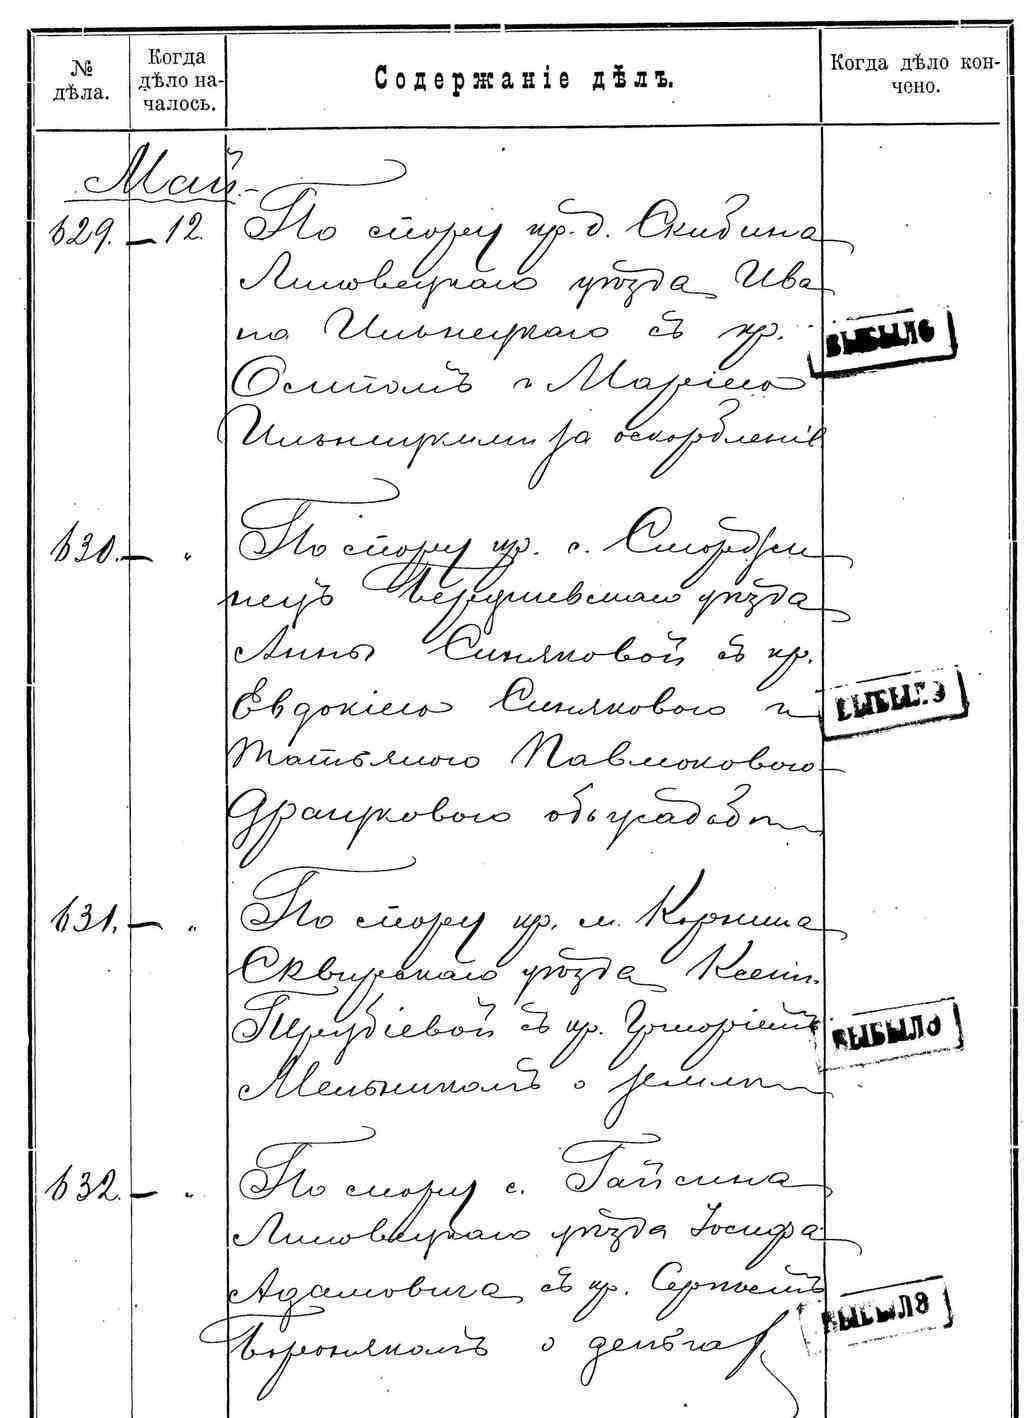 № дѣла.
Когда дѣло началось.
Содержаніе дѣлъ.
Когда дѣло кончено.
Май
629. — 12. По спору кр. д. Скибина
Липовецкаго уѣзда Ива
на Ильницкаго съ кр.
Осипомъ и Маріею
Ильницкими за оскорбленіе
ВЫБЫЛО
630. — „ По спору кр. с.
нецъ Бердичевскаго уѣзда
Анны Синяковой съ кр.
Евдокіею Синяковою и
ВЫБЫЛО
Татьяною Павлюковою
631. — „ По спору кр. м. Корнина
Сквирскаго уѣзда Ксеніи
Трубіевой съ кр. Григоріемъ
ВЫБЫЛО
Мельникомъ о землѣ
632. — „ По спору с. Гайсина
Липовецкаго уѣзда Іосифа
Адамовича съ кр. Сергѣемъ
ВЫБЫЛО
о деньгах